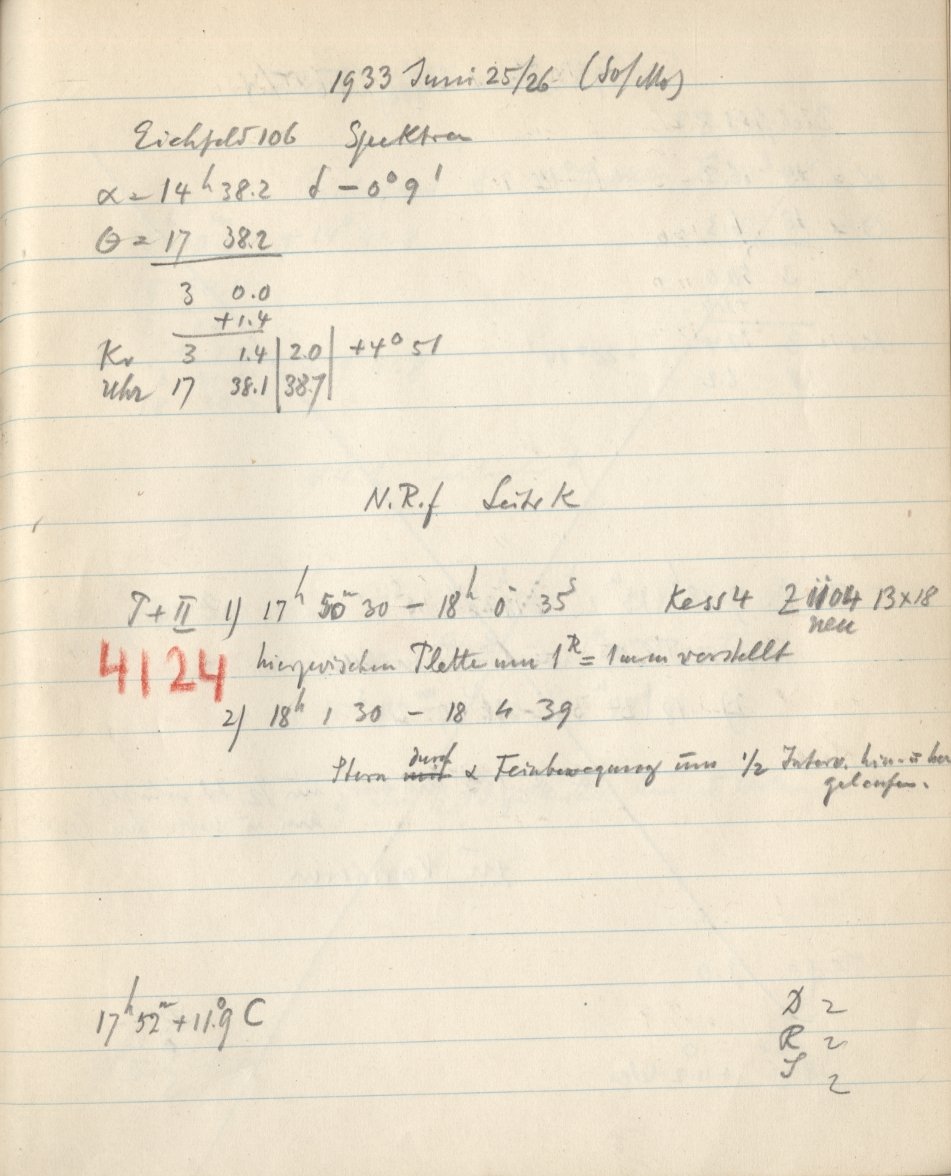 1933 Juni 25/26 (So/Mo)
Eichfeld 106 Spektren
α = 14ʰ 38.2 δ − 0° 9'
θ = 17 38.2
3 0.0
+1.4
Kr 3 1.4 | 2.0 | +4° 51
Uhr 17 38.1 | 38.7 |
N.R.f Seite K
T + II 1) 17ʰ 50ᵐ 30 − 18ʰ 0ᵐ 35ˢ Kass 4 Z 1104 13×18
neu
4124 hierzwischen Platte um 1ᴿ = 1mm verstellt
2) 18ʰ 1 30 − 18 4 39
Stern mit durch α Feinbewegung um ½ Interv. hin u her
gelaufen.
17ʰ 52ᵐ + 11°.9 C
D 2
R 2
S 2